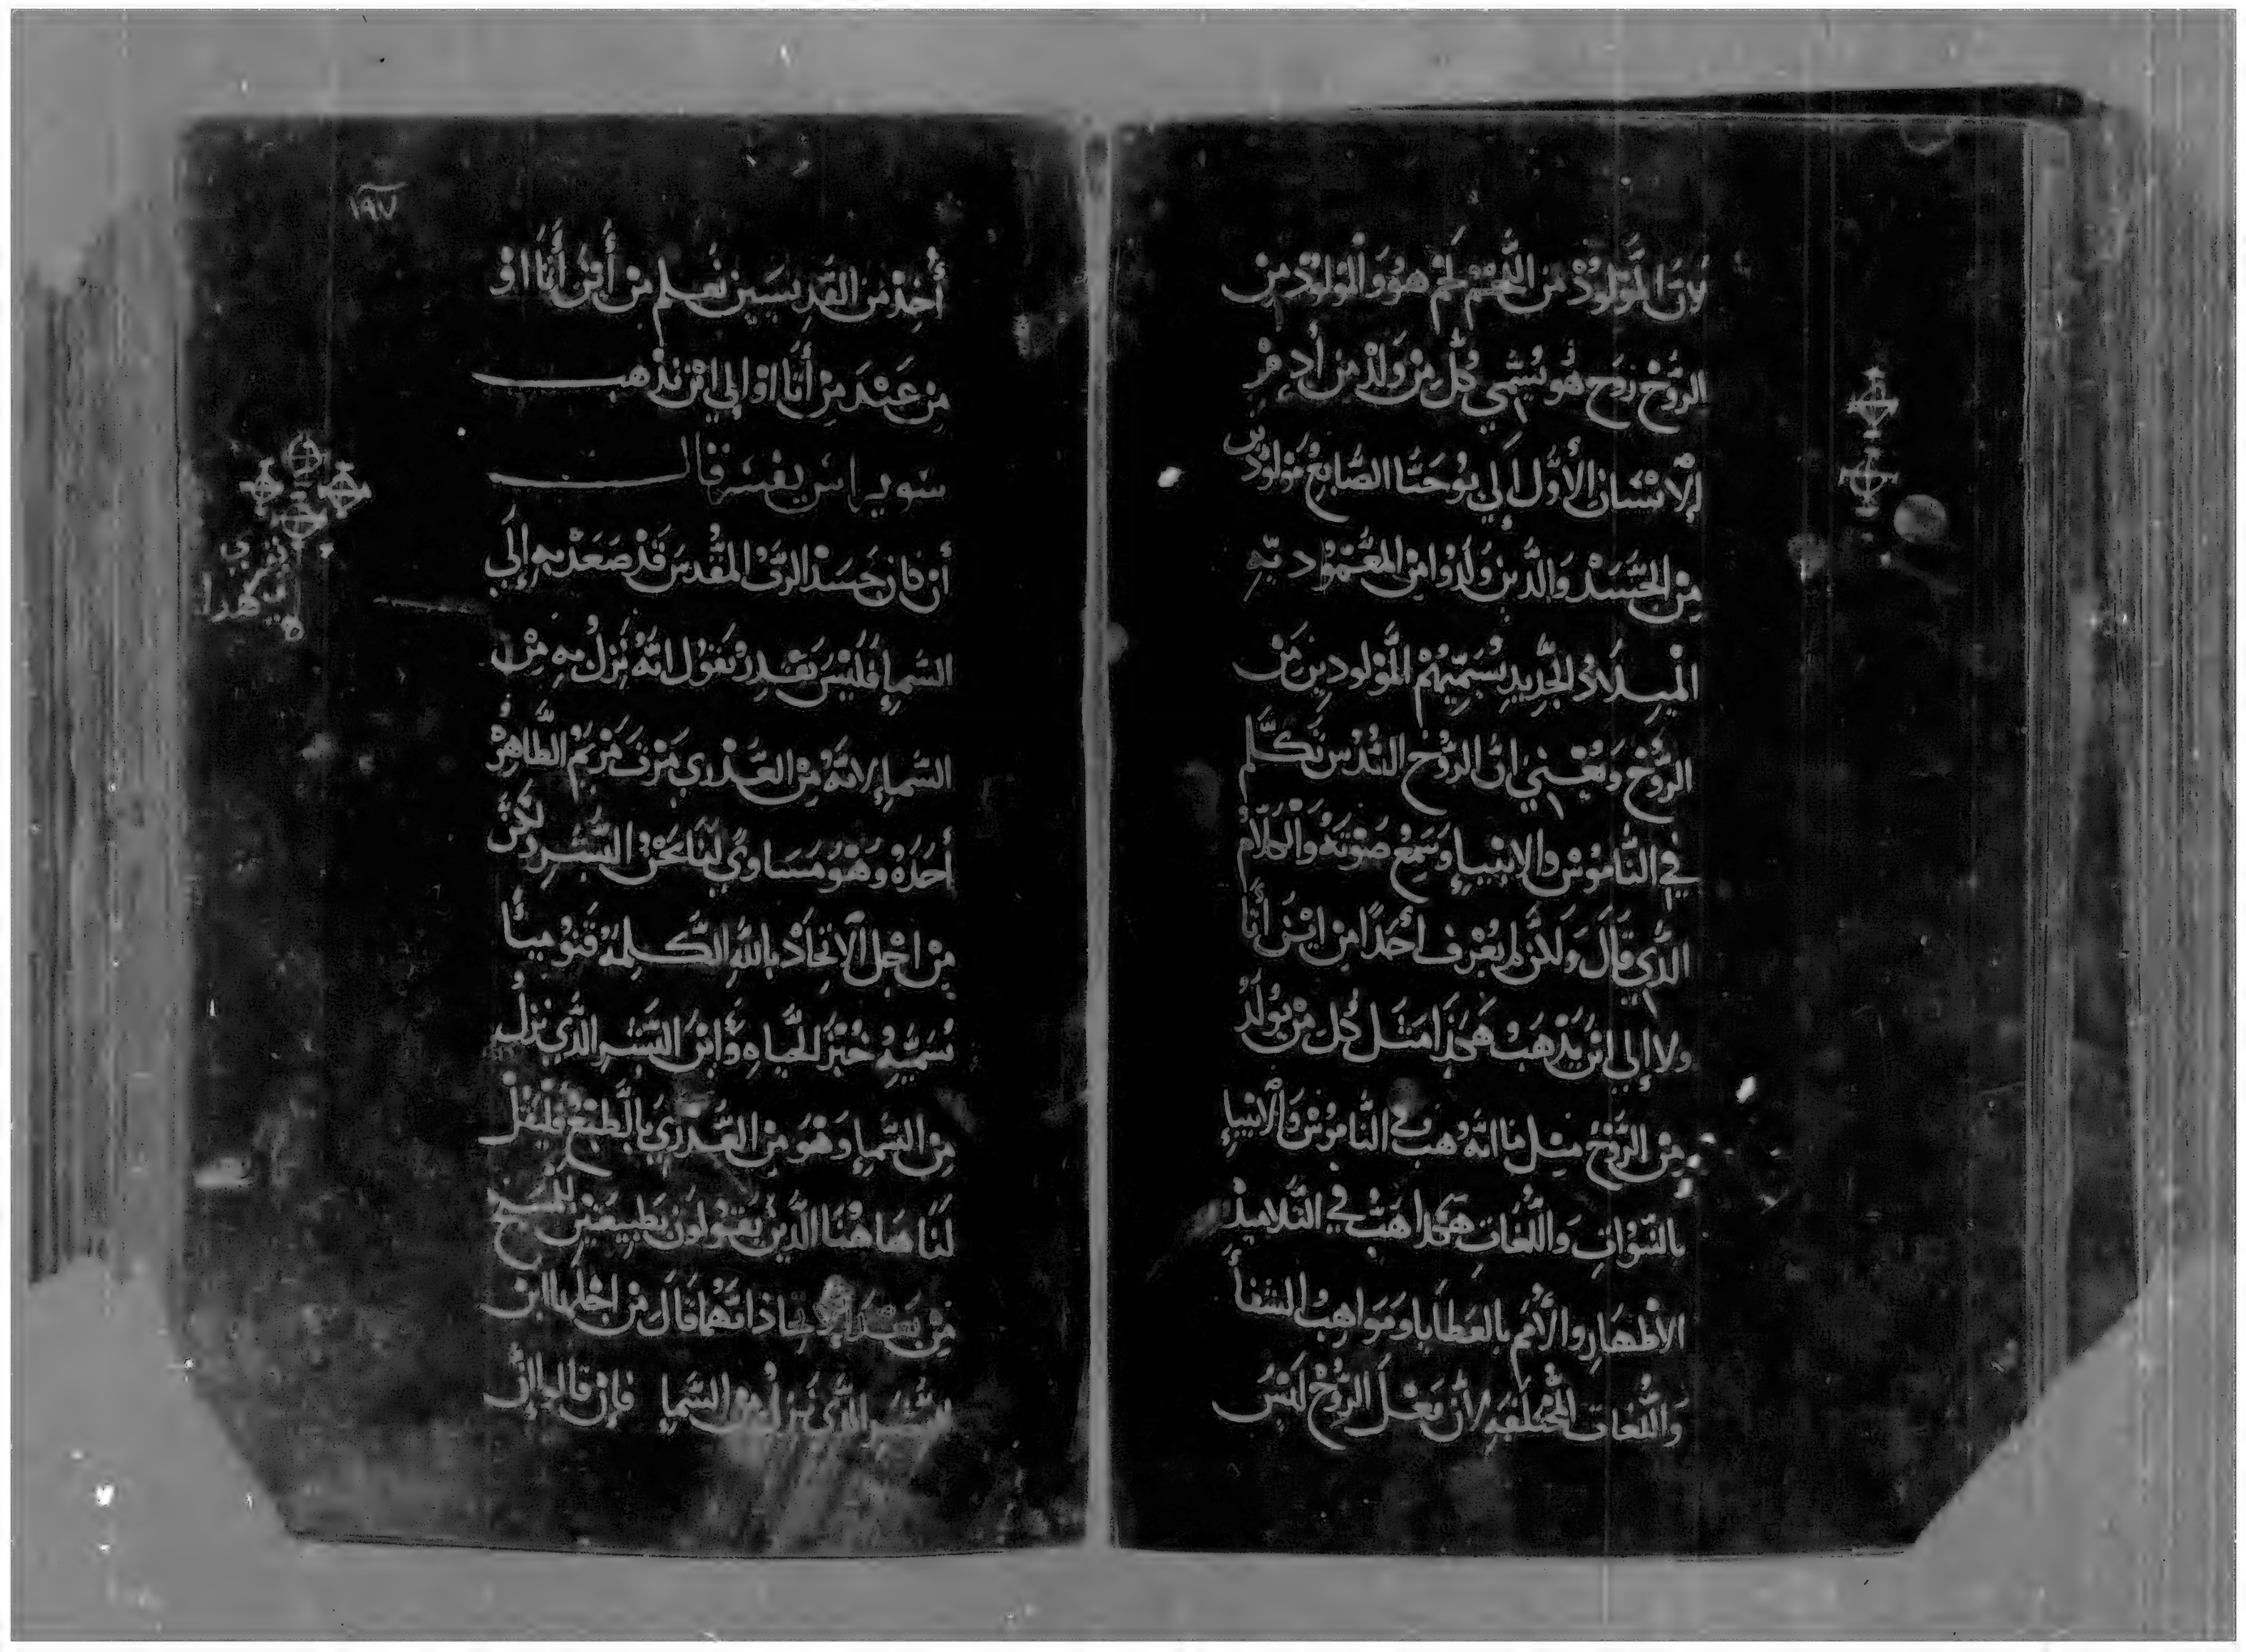 لان المَولُودْ من اللَّحم لحم هُوَ وَالمولود من
الرُوح رُوَح هُو يُسَمي كُل مِن وَلدْ مِن أدم
الأنسَان الأَوَّل إلي يُوحَنَّا الصَّابغ مَولُودين
مِن الجَسَدْ وَالذَّين وُلِدُوا مِن المعَموديّه
المِيلَادْ الجَدِيدِ يُسَمِّيهُمْ المَولودين مَن
الرُوحْ وَيَعْني انَّ الرُوحْ القُدُسْ تَكَلَّم
في النَّامُوسْ والانبيإ وَسَمِعْ صَوْتَهُ وَالكَلَامْ
الذَّي قَالَ وَلكن لم يَعْرف أحَدًا مِن ايْن أتَا
ولا إلي ايْن يَذْهَب هَكَذا مَثَل كُل مَنْ يُولَدْ
مِن الرُّوحْ مثِل مَا انَّهُ هب في النَّامُوسْ وَالأنبيإ
بالنبُوَّاتِ وَاللُّغَاتِ هكَذا هَبَّ في التَّلَاميذ
الأطْهَارِ والأُمَم بالعَطَايا وَمَوَاهِبُ الشفأ
وَاللُّغَات المُخْتَلفَهِ لأنْ فِعْلَ الرُّوحْ لَيْسَ
١٩٧
أحَد مَن القدِيسَيين تعَلم مِن أين أتَا اوْ
مِن عَنْدَ مَنْ أتَا اوْ إلي ايْن يَذْهب
سويراس يفسر قال
أن كان جَسَد الرَّب المقُدسَ قَدْ صَعَدْ بهِ إلَي
السَّمإِ فَلَيْسَ يَقْدِر يقول انَّهُ نَزلْ بهِ مِنْ
السَّمإِ لانَّهُ مِن العَذري مَرْت مَرْيَمْ الطَّاهِرهْ
أخَذَهْ وَهْوُ مُسَاويً لَنَا نَحْنُ البَشَرِ ولَكِنْ
مِن اجْل الاتِحَادْ باللَّهِ الكَلِمَهْ قَنوُميًا
نُسَمّيِهُ خُبْز الحَياه وَابْنَ البَشَرِ الذَّي نزلْ
مِن السَّمإِ وَهُوَ مِن العَذري بالطبْعْ فليَقلْ
لَنَا هَا هُنَا الذَّينْ يَقُولُونْ بَطبِيعَتَيْن لِلمَسيحْ
مِنْ بَعْدَ الاتحاد انَّهُمَا قَالَ مِن اجْلهَا ابن
البشَرِ الذَّي نَزلْ مِن السَّمإِ فإن قالوا إن